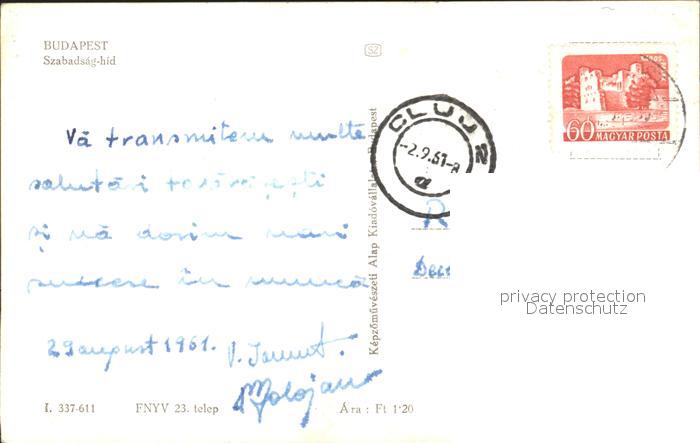 BUDAPEST
Szabadság-hid
SZ
Vă transmitem multe
salutări tovărăşeşti
şi vă dorim mari
succese în muncă
29 august 1961.
I. 337-611 FNYV 23. telep Ára : Ft 1·20
Képzőművészeti Alap Kiadóvállalat, Budapest
CLUJ 2
-2.9.61-8
a
60 MAGYAR POSTA
R
privacy protection
Datenschutz